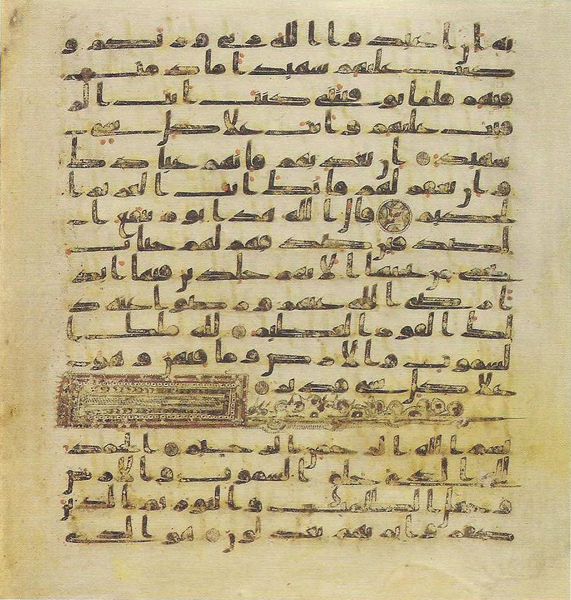 به ان اعبدوا الله ربي وربكم و
كنت عليهم شهيدا ما دمت
فيهم فلما توفيتني كنت انت الر
قيب عليهم وانت على كل شي
شهيد ان تعذبهم فانهم عبادك
وان تغفر لهم فانك انت العزيز ا
لحكيم قال الله هذا يوم ينفع ا
لصدقين صدقهم لهم جنت
تجري من تحتها الانهر خلدين فيها ابد
ا رضي الله عنهم ورضوا عنه ذ
لك الفوز العظيم لله ملك ا
لسموت والارض وما فيهن وهو
على كل شي قدير
بسم الله الرحمن الرحيم الحمد
لله الذي خلق السموت والارض
وجعل الظلمت والنور ثم الذين
كفروا بربهم يعدلون هو الذي